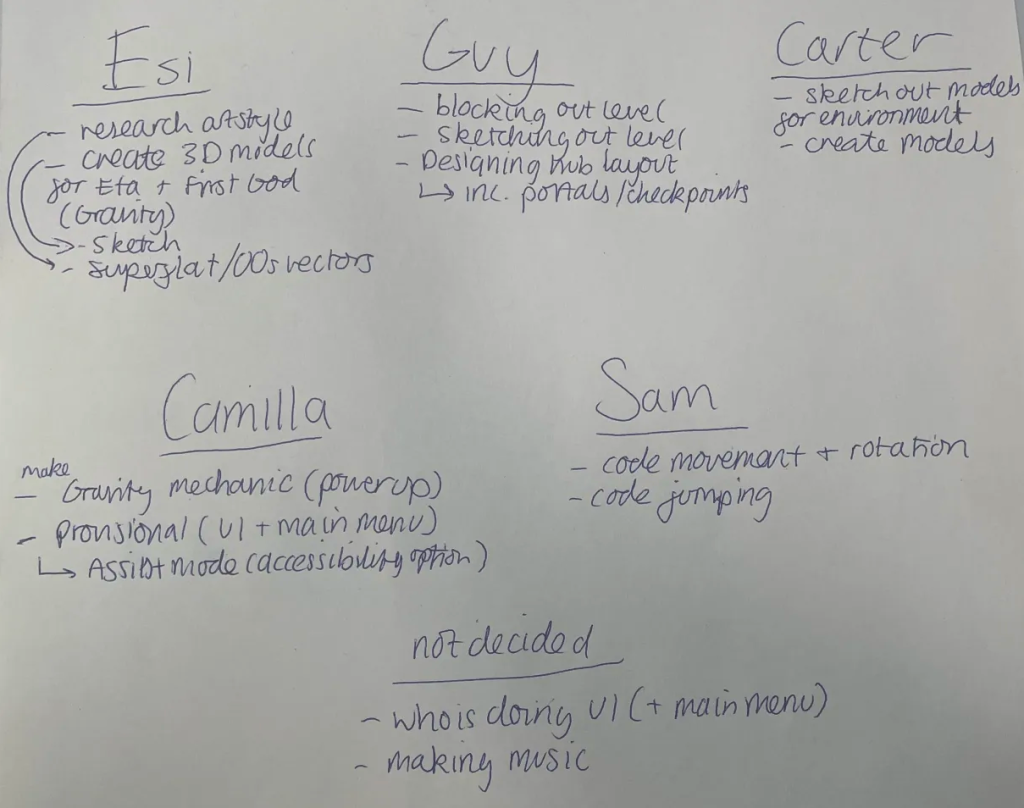 Esi
- research artstyle
- create 3D models
for Eta + First God
(Gravity)
- sketch
- superflat/00s vectors
Guy
- blocking out level
- sketching out level
- Designing hub layout
↳ inc. portals/checkpoints
Carter
- sketch out models
for environment
- create models
Camilla
make
- Gravity mechanic (powerup)
- Provisional (UI + main menu)
↳ Assist mode (accessibility option)
Sam
- code movement + rotation
- code jumping
not decided
- who is doing UI (+ main menu)
- making music